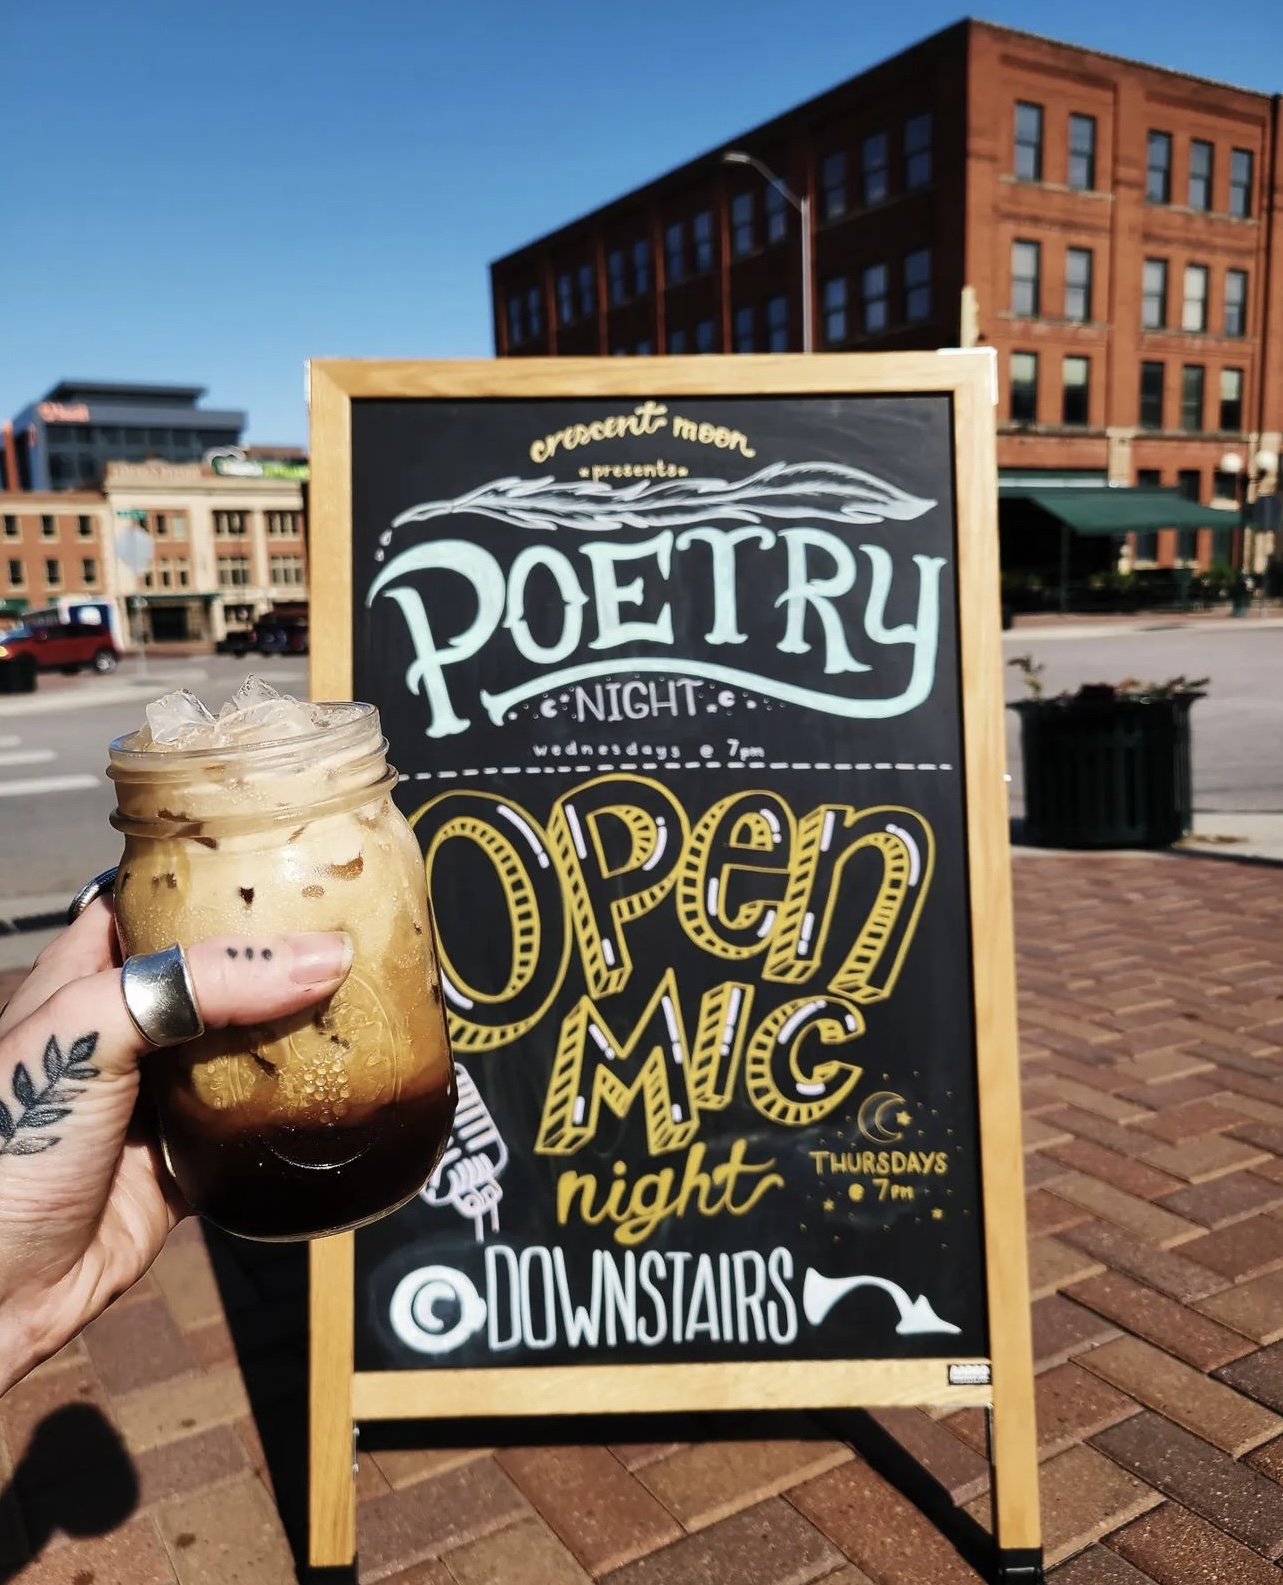 crescent moon
presents
POETRY
NIGHT
wednesdays @ 7pm
OPen
MIC
night
THURSDAYS
@ 7pm
DOWNSTAIRS